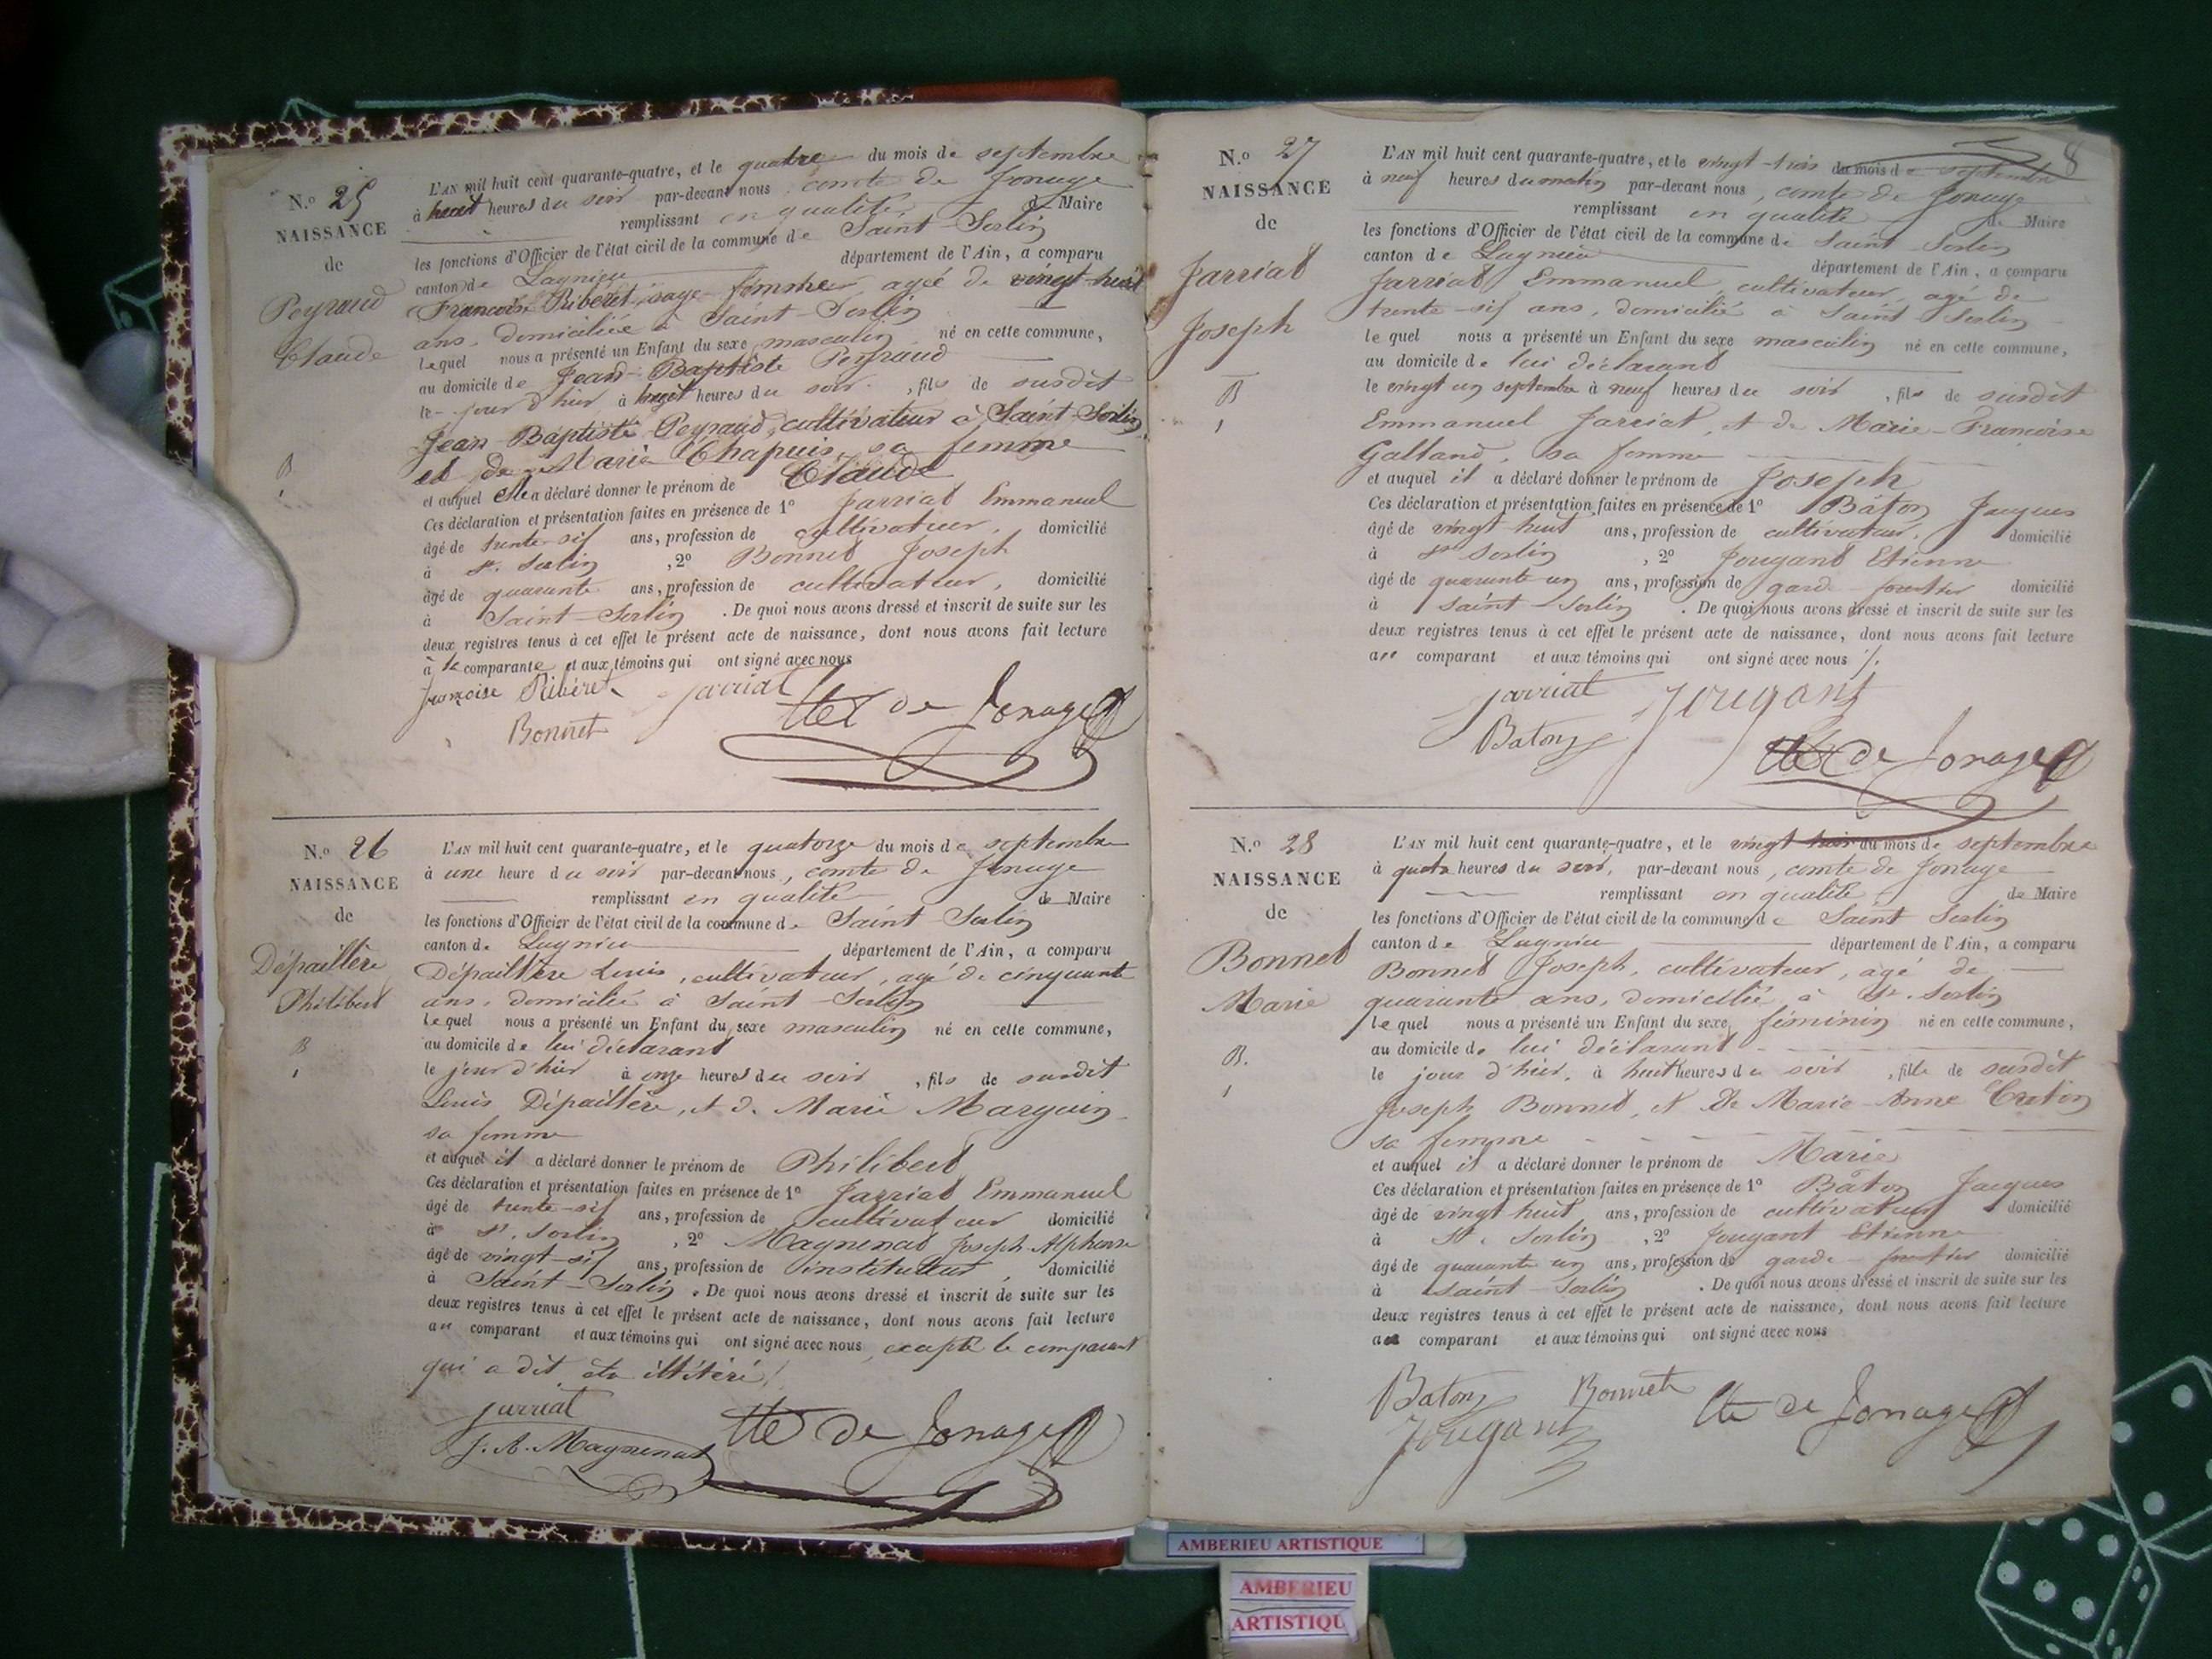 N.º 25
NAISSANCE
de
Peyraud
Claude
B
L'AN mil huit cent quarante-quatre, et le quatre du mois de septembre
à huit heures du soir par-devant nous, comte de Jonage
remplissant en qualité de Maire
les fonctions d'Officier de l'état civil de la commune de Saint-Sorlin
canton de Lagnieu département de l'Ain, a comparu
Françoise Ribéret, sage-femme, agée de vingt-huit
ans, domiciliée à Saint-Sorlin
lequel nous a présenté un Enfant du sexe masculin né en cette commune,
au domicile de Jean-Baptiste Peyraud
le jour d'hier à huit heures du soir, fils de susdit
Jean-Baptiste Peyraud, cultivateur à Saint-Sorlin
et de Marie Chapuis, sa femme
et auquel elle a déclaré donner le prénom de Claude
Ces déclaration et présentation faites en présence de 1º Jarriat Emmanuel
âgé de trente-six ans, profession de cultivateur, domicilié
à St. Sorlin, 2º Bonnet Joseph
âgé de quarante ans, profession de cultivateur, domicilié
à Saint-Sorlin. De quoi nous avons dressé et inscrit de suite sur les
deux registres tenus à cet effet le présent acte de naissance, dont nous avons fait lecture
à la comparante et aux témoins qui ont signé avec nous
françoise Ribéret jarriat
Bonnet Cte de Jonage
N.º 26
NAISSANCE
de
Dépaillère
Philibert
B
L'AN mil huit cent quarante-quatre, et le quatorze du mois de septembre
à une heure du soir par-devant nous, comte de Jonage
remplissant en qualité de Maire
les fonctions d'Officier de l'état civil de la commune de Saint-Sorlin
canton de Lagnieu département de l'Ain, a comparu
Dépaillère Louis, cultivateur, agé de cinquante
ans, domicilié à Saint-Sorlin
lequel nous a présenté un Enfant du sexe masculin né en cette commune,
au domicile de lui déclarant
le jour d'hier à onze heures du soir, fils de susdit
Louis Dépaillère, et de Marie Marguin
sa femme
et auquel il a déclaré donner le prénom de Philibert
Ces déclaration et présentation faites en présence de 1º Jarriat Emmanuel
âgé de trente-six ans, profession de cultivateur domicilié
à St. Sorlin, 2º Magnenat Joseph-Alphonse
âgé de vingt-six ans, profession de instituteur, domicilié
à Saint-Sorlin. De quoi nous avons dressé et inscrit de suite sur les
deux registres tenus à cet effet le présent acte de naissance, dont nous avons fait lecture
au comparant et aux témoins qui ont signé avec nous, excepté le comparant
qui a dit être illitéré
jarriat
J. A. Magnenat Cte de Jonage
8
N.º 27
NAISSANCE
de
Jarriat
Joseph
B
L'AN mil huit cent quarante-quatre, et le vingt-trois du mois de septembre
à neuf heures du matin par-devant nous, comte de Jonage
remplissant en qualité de Maire
les fonctions d'Officier de l'état civil de la commune de Saint-Sorlin
canton de Lagnieu département de l'Ain, a comparu
Jarriat Emmanuel, cultivateur, agé de
trente-six ans, domicilié à Saint-Sorlin
lequel nous a présenté un Enfant du sexe masculin né en cette commune,
au domicile de lui déclarant
le vingt un septembre à neuf heures du soir, fils de susdit
Emmanuel Jarriat, et de Marie-Françoise
Galland, sa femme
et auquel il a déclaré donner le prénom de Joseph
Ces déclaration et présentation faites en présence de 1º Bâton Jacques
âgé de vingt huit ans, profession de cultivateur, domicilié
à St Sorlin, 2º Jougant Etienne
âgé de quarante un ans, profession de garde-forestier domicilié
à Saint-Sorlin. De quoi nous avons dressé et inscrit de suite sur les
deux registres tenus à cet effet le présent acte de naissance, dont nous avons fait lecture
au comparant et aux témoins qui ont signé avec nous
jarriat Jougant
Baton Cte de Jonage
N.º 28
NAISSANCE
de
Bonnet
Marie
B.
L'AN mil huit cent quarante-quatre, et le vingt du mois de septembre
à quatre heures du soir, par-devant nous, comte de Jonage
remplissant en qualité de Maire
les fonctions d'Officier de l'état civil de la commune de Saint Sorlin
canton de Lagnieu département de l'Ain, a comparu
Bonnet Joseph, cultivateur, agé de
quarante ans, domicilié à St. Sorlin
lequel nous a présenté un Enfant du sexe féminin né en cette commune,
au domicile de lui déclarant
le jour d'hier, à huit heures du soir, fille de susdit
Joseph Bonnet, et de Marie-Anne Cretin
sa femme
et auquel il a déclaré donner le prénom de Marie
Ces déclaration et présentation faites en présence de 1º Bâton Jacques
âgé de vingt huit ans, profession de cultivateur domicilié
à St. Sorlin, 2º Jougant Etienne
âgé de quarante un ans, profession de garde-forestier domicilié
à Saint-Sorlin. De quoi nous avons dressé et inscrit de suite sur les
deux registres tenus à cet effet le présent acte de naissance, dont nous avons fait lecture
au comparant et aux témoins qui ont signé avec nous
Baton Bonnet Cte de Jonage
Jougant
AMBERIEU ARTISTIQUE
AMBERIEU
ARTISTIQU